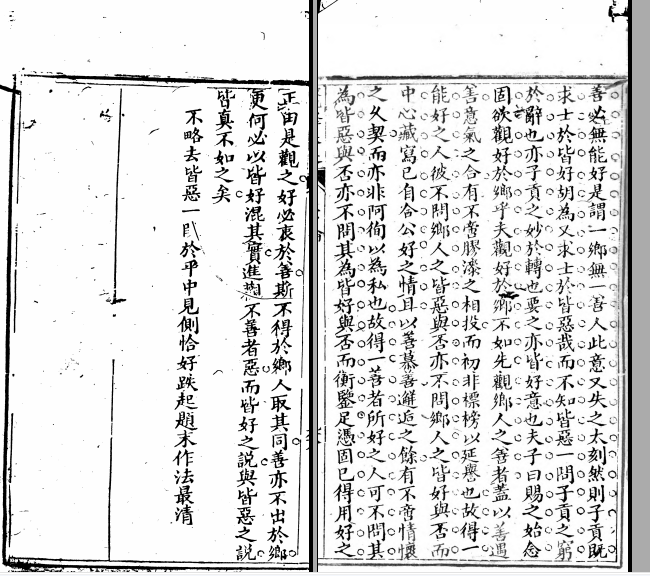 善必無能好是謂一鄉無一善人此意又失之太刻然則子貢既
求士於皆好胡為又求士於皆惡哉而不知皆惡一問子貢之窮
於辭也亦子貢之妙於轉也要之亦皆好意也夫子曰賜之始念
固欲觀好於鄉乎夫觀好於鄉不如先觀鄉人之善者蓋以善遇
善意氣之合有不啻膠漆之相投而初非標榜以延譽也故得一
能好之人彼不問鄉人之皆惡與否亦不問鄉人之皆好與否而
中心藏寫已自合公好之情且以善慕善邂逅之餘有不啻情懷
之久契而亦非阿徇以為私也故得一善者所好之人可不問其
為皆惡與否亦不問其為皆好與否而衡鑒足憑固已得用好之
正由是觀之好必衷於善斯不得於鄉人取其同善亦不出於鄉
更何必以皆好混其實進觀不善者惡而皆好之說與皆惡之說
皆真不如之矣
不略去皆惡一於平中見側恰好跌起題末作法最清